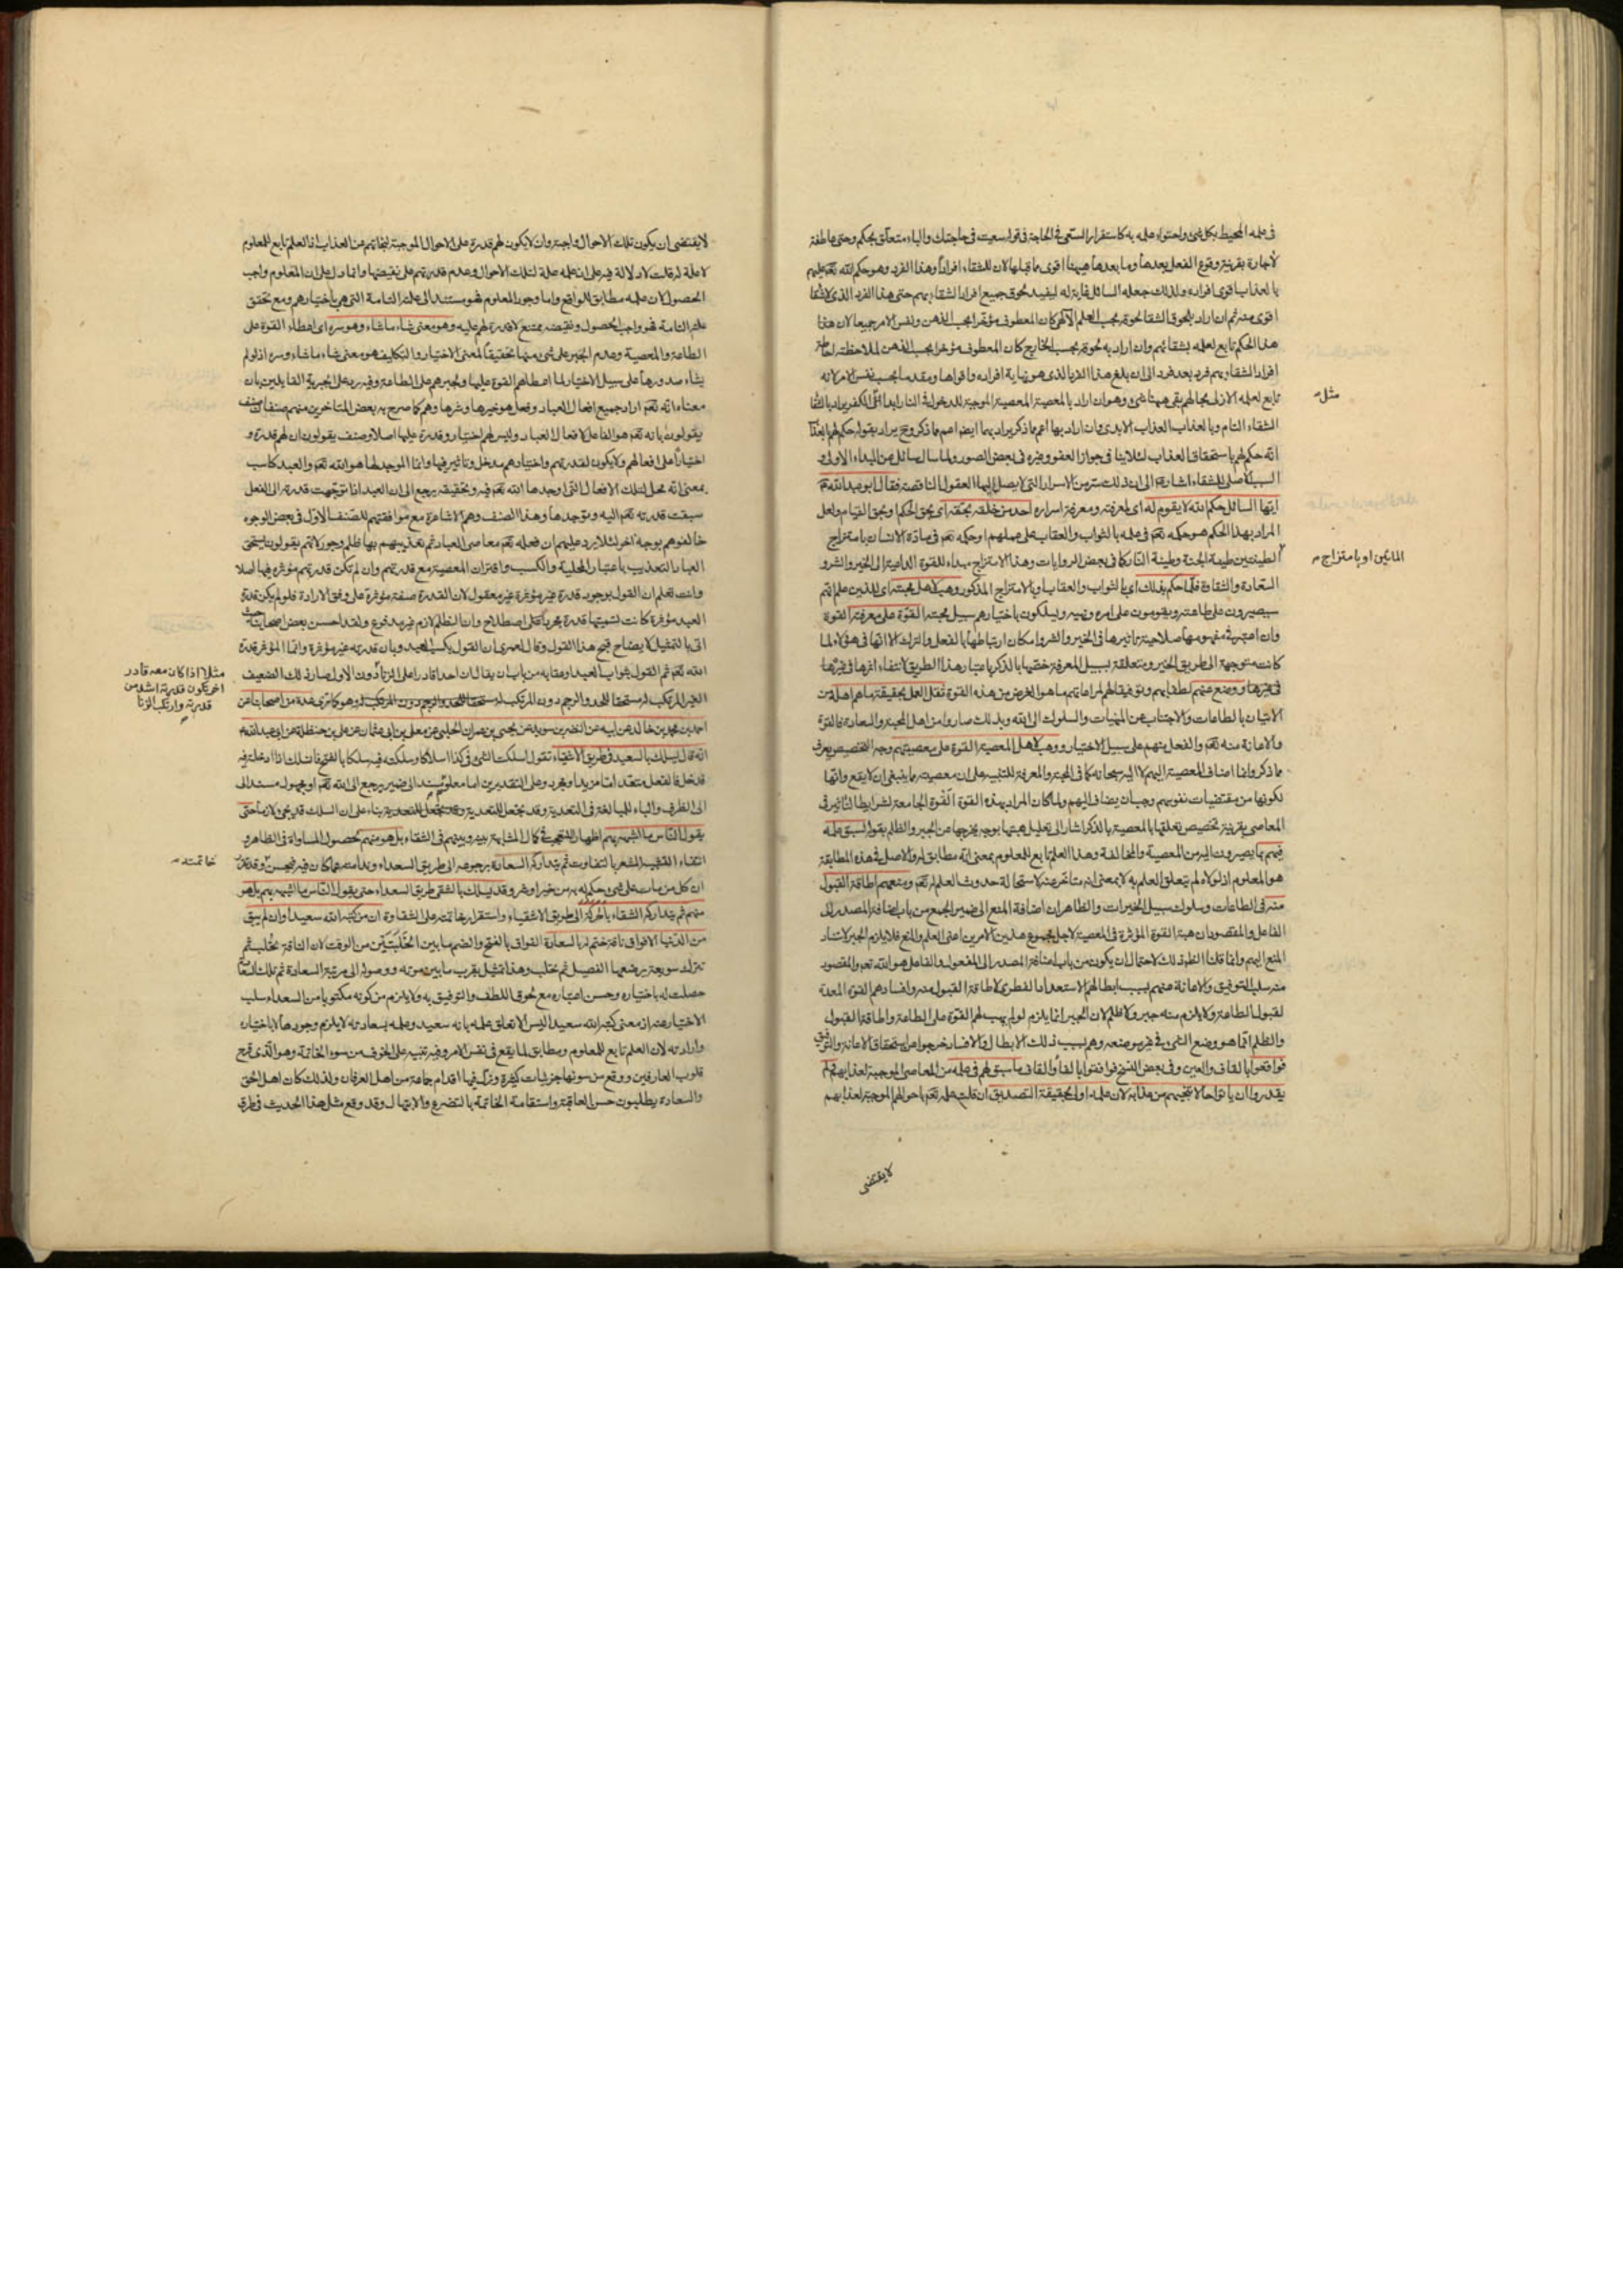 في علمه المحيط بكل شيء واحتواء علمه به كاستقرار السعي في الحاجة في قولك سعيت في حاجتك والباء متعلق بحكم وحتى عاطفة
لا جارة بقرينة وقوع الفعل بعدها وما بعدها ههنا اقوى مما قبلها لان للشقاء افرادا وهذا الفرد وهو حكم الله تعم عليهم
بالعذاب اقوى افراده ولذلك جعله السائل غاية له ليفيد لحوق جميع افراد الشقاء بهم حتى هذا الفرد الذي لا شقاء
اقوى منه ثم ان اراد بلحوق الشقاء لحوقه بحسب العلم الازلي كان المعطوف مؤخرا بحسب الذهن ونفس الامر جميعا لان هذا
هذا الحكم تابع لعلمه بشقائهم وان اراد به لحوقه بحسب الخارج كان المعطوف مؤخرا بحسب الذهن لملاحظته لحاظ
افراد الشقاوة بهم فرد بعد فرد الى ان بلغ هذا الفرد الذي هو نهاية افراده واقواها ومقدما بحسب نفس الامر لانه
تابع لعلمه الازلي بحالهم بقي ههنا شيء وهو ان اراد بالمعصية المعصية الموجبة للدخول في النار ابدا اعني الكفر يراد بالشقاء
مثل
الشقاء التام وبالعذاب العذاب الابدي وان اراد بها اعم مما ذكر يراد بهما ايضا اعم مما ذكر وح يراد بقوله حكم لهم بالعذاب
انه حكم لهم باستحقاق العذاب لئلا ينافي جواز العفو وغيره في بعض الصور ولما سال سائل عن المبداء الاولى و
السبب الاصلي للشقاء اشار ع الى ان ذلك سر من الاسرار التي لا يصل اليها العقول الناقصة فقال ابو عبد الله ع
ايها السائل حكم الله لا يقوم له اي لمعرفته ومعرفة اسراره احد من خلقه بحقه اي بحق الحكم او بحق القيام ولعل
المراد بهذا الحكم هو حكمه تعم في علمه بالثواب والعقاب على عملهم او حكمه تعم في مادة الانسان بامتزاج
الطينتين طينة الجنة وطينة النار كما في بعض الروايات وهذا الامتزاج مبداء للقوة الداعية الى الخير والشر و
المائين او بامتزاج
السعادة والشقاوة فلما حكم بذلك اي بالثواب والعقاب او بالامتزاج المذكور وهب لاهل محبته اي للذين علم انهم
سيصيرون على طاعته ويقومون على امره ونهيه ويسلكون باختيارهم سبيل محبته القوة على معرفته القوة
وان اعتبر في مفهومها صلاحية تاثيرها في الخير والشر وامكان ارتباطها بالفعل والترك الا انها في هؤلاء لما
كانت متوجهة الى طريق الخير ومتعلقة بسبيل المعرفة خصها بالذكر باعتبار هذا الطريق لانتفاء اثرها في غيرها
ووضع عنهم لطفا بهم وتوفيقا لهم لمراعاتهم ما هو الغرض من هذه القوة ثقل العمل بحقيقة ما هم اهله من
الاتيان بالطاعات والاجتناب عن المنهيات والسلوك الى الله وبذلك صاروا من اهل المحبة والسعادة فالقوة
والاعانة منه تعم والفعل منهم على سبيل الاختيار ووهب لاهل المعصية القوة على معصيتهم وجه التخصيص يعرف
مما ذكر وانما اضاف المعصية اليهم لا اليه سبحانه كما في المحبة والمعرفة للتنبيه على ان معصيته مما ينبغي ان لا يقع وانها
لكونها من مقتضيات نفوسهم وجب ان يضاف اليهم ولما كان المراد بهذه القوة القوة الجامعة لشرايط التاثير في
المعاصي بقرينة تخصيص تعلقها بالمعصية بالذكر اشار الى تعليل هبتها بوجه يخرجها عن الجبر والظلم بقوله لسبق علمه
فيهم بما يصيرون اليه من المعصية والمخالفة وهذا العلم تابع للمعلوم بمعنى انه مطابق له والاصل في هذه المطابقة
هو المعلوم اذ لولاه لم يتعلق العلم به لا بمعنى انه متاخر عنه لاستحالة حدوث العلم له تعم ومنعهم اطاقة القبول
منه في الطاعات وسلوك سبيل الخيرات والظاهر ان اضافة المنع الى ضمير الجمع من باب اضافة المصدر الى
الفاعل والمقصود ان هبة القوة المؤثرة في المعصية لاجل مجموع هذين الامرين اعني العلم والمنع فلا يلزم الجبر لاستناد
المنع اليهم وانما قلنا الظاهر ذلك لاحتمال ان يكون من باب اضافة المصدر الى المفعول والفاعل هو الله تعم والمقصود
منه سلب التوفيق والاعانة عنهم بسبب ابطالهم الاستعداد الفطري لاطاقة القبول منه وافسادهم القوة المعدة
لقبول الطاعة ولا يلزم منه جبر ولا ظلم لان الجبر انما يلزم لو لم يهب لهم القوة على الطاعة واطاقة القبول
والظلم انما هو وضع الشيء في غير موضعه وهم بسبب ذلك الابطال والافساد خرجوا من استحقاق الاعانة والتوفيق
فواقعوا بالقاف والعين وفي بعض النسخ فوافقوا بالفاء والقاف ما سبق لهم في علمه من المعاصي الموجبة لعذابهم ولم
يقدروا ان ياتوا حالا تنجيهم من عذابه لان علمه اولى بحقيقة التصديق ان قلت علمه تعم باحوالهم الموجبة لعذابهم
لا يقتضي
لا يقتضي ان يكون تلك الاحوال واجبة وان لا يكون لهم قدرة على الاحوال الموجبة لنجاتهم من العذاب اذ العلم تابع للمعلوم
لا علة له قلت لا دلالة فيه على ان علمه علة لتلك الاحوال وعدم قدرتهم على نقيضها وانما دل على ان المعلوم واجب
الحصول لان علمه مطابق للواقع واما وجود المعلوم فهو مستند الى علته التامة التي هي باختيارهم ومع تحقق
علته التامة فهو واجب الحصول ونقيضه ممتنع لا قدرة لهم عليه وهو معنى شاء ما شاء وهو سره اي اعطاء القوة على
الطاعة والمعصية وعدم الجبر على شيء منهما تحقيقا لمعنى الاختيار والتكليف هو معنى شاء ما شاء وسره اذ لو لم
يشاء صدورها على سبيل الاختيار لما اعطاهم القوة عليها ولجبرهم على الطاعة وفيه رد على الجبرية القايلين بان
معناه انه تعم اراد جميع افعال العباد وفعل هو خيرها وشرها وهم كما صرح به بعض المتاخرين منهم صنفان صنف
يقولون بانه تعم هو الفاعل لافعال العباد وليس لهم اختيار وقدرة عليها اصلا وصنف يقولون ان لهم قدرة و
اختيارا على افعالهم ولا يكون لقدرتهم واختيارهم مدخل وتاثير فيها وانما الموجد لها هو الله تعم والعبد كاسب
بمعنى انه محل لتلك الافعال التي اوجدها الله تعم فيه وتحقيقه يرجع الى ان العبد اذا توجهت قدرته الى الفعل
سبقت قدرته تعم اليه وتوجدها وهذا الصنف وهم الاشاعرة مع موافقتهم للصنف الاول في بعض الوجوه
خالفوهم بوجه اخر لئلا يرد عليهم ان فعله تعم معاصي العباد ثم تعذيبهم بها ظلم وجور لانهم يقولون يستحق
العباد التعذيب باعتبار المحلية والكسب واقتران المعصية مع قدرتهم وان لم تكن قدرتهم مؤثرة فيها اصلا
وانت تعلم ان القول بوجود قدرة غير مؤثرة غير معقول لان القدرة صفة مؤثرة على وفق الارادة فلو لم يكن قدرة
العبد مؤثرة كانت تسميتها قدرة مجرد اصطلاح وان الظلم لازم غير مدفوع ولقد احسن بعض اصحابنا حيث
اتى بالتمثيل لايضاح قبح هذا القول وقال لعمري ان القول بكسب العبد وبان قدرته غير مؤثرة وانما المؤثر قدرة
الله تعم ثم القول بثواب العبد وعقابه من باب ان يقال ان احدا قادرا على الزنا دون الاول صار ذلك الضعيف
مثلا اذا كان معه قادر
اخر يكون قدرته اشد من
قدرته وارتكب الزنا
الغير المرتكب له مستحقا للحد والرجم دون المرتكب له وهو كما ترى عدة من اصحابنا عن
احمد بن محمد بن خالد عن ابيه عن النضر بن سويد عن يحيى بن عمران الحلبي عن معلى بن ابي عثمان عن علي بن حنظلة عن ابي عبد الله ع
انه قال يسلك بالسعيد في طريق الاشقياء تقول سلكت الشيء في كذا اسلاكا وسلكته فيه سلكا بالفتح فانسلك اذا ادخلته فيه
فدخل فالفعل متعد اما مزيد او مجرد وعلى التقديرين اما معلوم مسند الى ضمير يرجع الى الله تعم او مجهول مسند الى
الى الظرف والباء للمبالغة في التعدية وقد يجعل للتعدية بناء على ان السلك قد يجيء لازما حتى
يقول الناس ما اشبهه بهم اظهار للتعجب في كمال المشابهة بينه وبينهم في الشقاء بل هو منهم لحصول المساواة في الظاهر و
انتفاء التشبيه المشعر بالتفاوت ثم يتداركه السعادة برجوعه الى طريق السعداء وندامته عما كان فيه فيحسن وقد تقرر
خاتمته
ان كل من مات على شيء حكم له به من خير او شر وقد يسلك بالشقي طريق السعداء حتى يقول الناس ما اشبهه بهم بل هو
منهم ثم يتداركه الشقاء الى طريق الاشقياء واستقرار خاتمته على الشقاوة ان من كتبه الله سعيدا وان لم يبق
من الدنيا الا فواق ناقة ختم له بالسعادة الفواق بالفتح والضم ما بين الحلبتين من الوقت لان الناقة تحلب ثم
تترك سويعة يرضعها الفصيل ثم تحلب وهذا تمثيل بقرب ما بين موته ووصوله الى مرتبة السعادة ثم تلك السعادة
حصلت له باختياره وحسن اعتباره مع لحوق اللطف والتوفيق به ولا يلزم من كونه مكتوبا من السعداء سلب
الاختيار عنه اذ معنى كتبه الله سعيدا ليس الا تعلق علمه بانه سعيد وعلمه بسعادته لا يلزم وجودها لا باختياره
وارادته لان العلم تابع للمعلوم ومطابق لما يقع في نفس الامر وفيه تنبيه على الخوف من سوء الخاتمة وهو الذي قرح
قلوب العارفين ووقع من سوئها جزئيات كثيرة وزل فيها اقدام جماعة من اهل العرفان ولذلك كان اهل الحق
والسعادة يطلبون حسن العاقبة واستقامة الخاتمة بالتضرع والابتهال وقد وقع مثل هذا الحديث في طرق